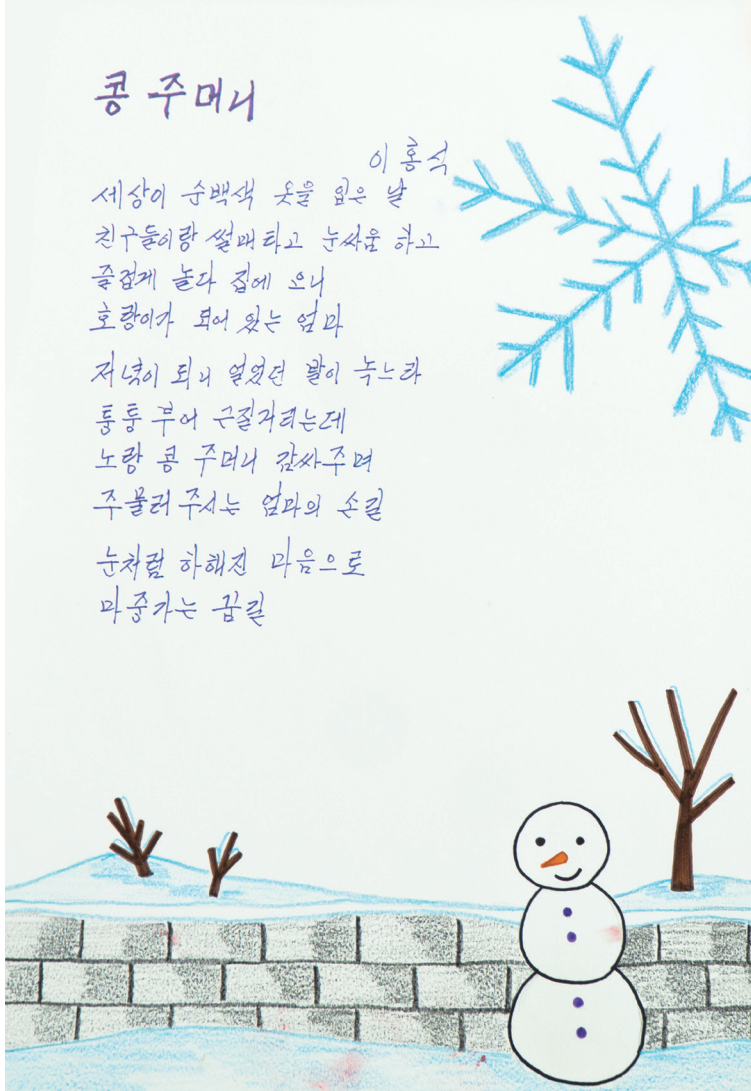 콩 주머니
이홍석
세상이 순백색 옷을 입은 날
친구들이랑 썰매타고 눈싸움 하고
즐겁게 놀다 집에 오니
호랑이가 되어 있는 엄마
저녁이 되니 얼었던 발이 녹느라
퉁퉁 부어 근질거리는데
노랑 콩 주머니 감싸주며
주물러 주시는 엄마의 손길
눈처럼 하해진 마음으로
마중가는 꿈길